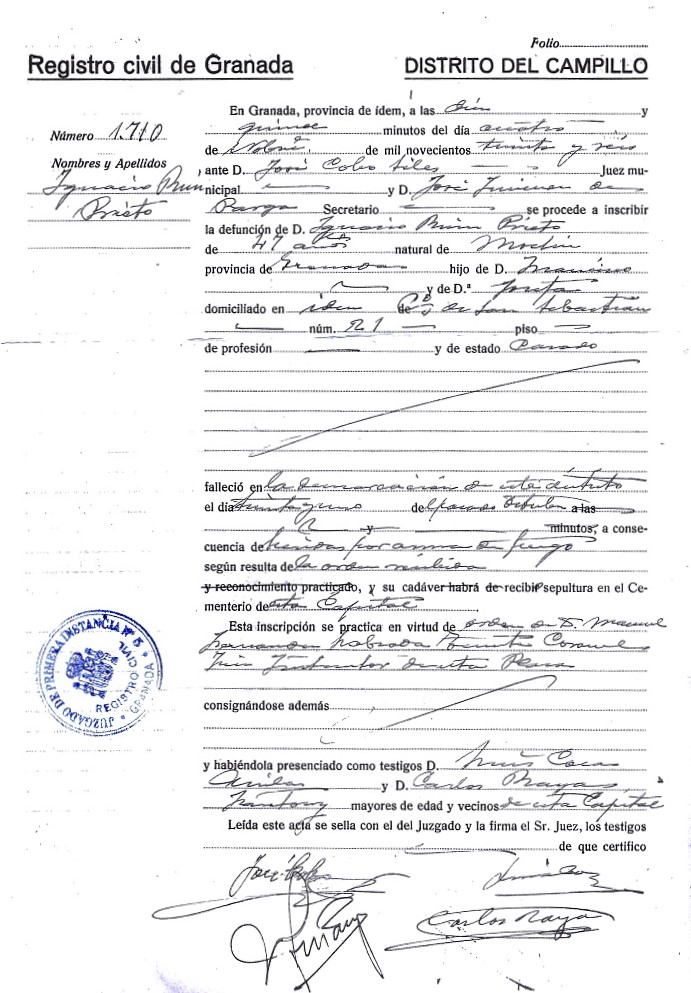 Folio
Registro civil de Granada
DISTRITO DEL CAMPILLO
En Granada, provincia de ídem, a las diez y
Número 1.710
quince minutos del día cuatro
de Nobre. de mil novecientos treinta y seis
Nombres y Apellidos
, ante D. José Cobo Juez mu-
Ignacio
nicipal y D. José Jimenez de
Prieto
Parga Secretario se procede a inscribir
la defunción de D. Ignacio Prieto
de 47 años natural de Moclín
provincia de Granada hijo de D.
y de D.ª
domiciliado en idem de San Sebastián
núm. 21 piso
de profesión y de estado Casado
falleció en la demarcación de este distrito
el día treinta y uno del pasado Octubre a las
y minutos, a conse-
cuencia de heridas por arma de fuego
según resulta de la orden recibida
y reconocimiento practicado, y su cadáver habrá de recibir sepultura en el Ce-
menterio de esta Capital
Esta inscripción se practica en virtud de orden de D. Manuel
Fernandez Labrada Teniente Coronel
Juez Instructor de esta Plaza
consignándose además
y habiéndola presenciado como testigos D. Luis Coca
y D. Carlos
mayores de edad y vecinos de esta Capital
Leída este acta se sella con el del Juzgado y la firma el Sr. Juez, los testigos
de que certifico
JUZGADO DE PRIMERA INSTANCIA Nº 5
REGISTRO CIVIL
GRANADA
José Cobo
Luis Coca
Carlos Raya